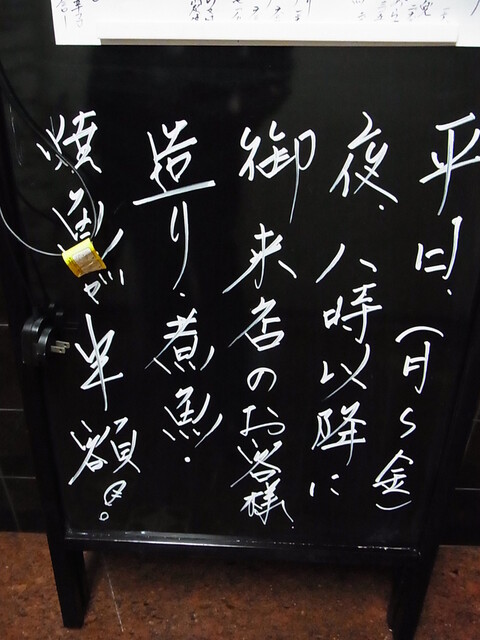 平日、(月～金)
夜、八時以降に
御来店のお客様
造り、煮魚、
焼魚が半額!。